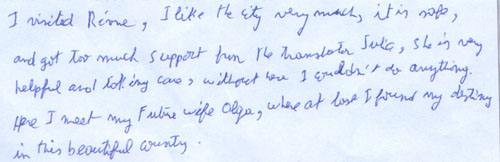 I visited Rivne, I like the city very much, it is safe,
and got too much support from the translator Julia, she is very
helpful and taking care, without here I wouldn't do anything.
Here I meet my Future wife Olga, where at last I found my destiny
in this beautiful country.